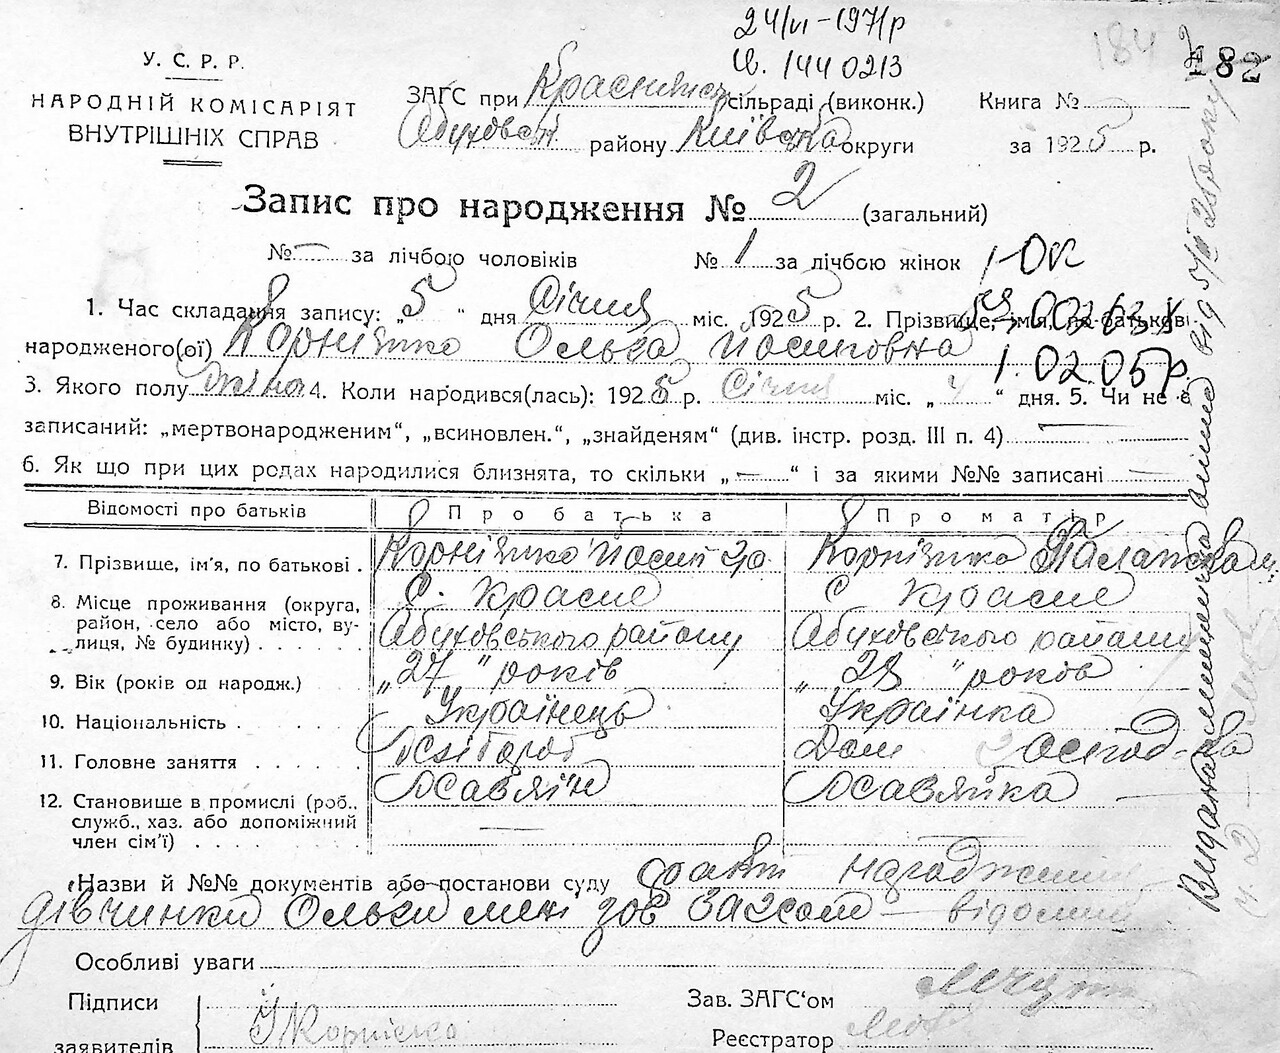 24/VI-1971р
184
182
У. С. Р. Р.
І-в. 1440213
НАРОДНІЙ КОМІСАРІЯТ
ВНУТРІШНІХ СПРАВ
ЗАГС при сільраді (виконк.) Книга №
Обухівськ району Київська округи за 1925 р.
Запис про народження № 2 (загальний)
№ — за лічбою чоловіків № 1 за лічбою жінок
1. Час складання запису: „5“ дня Січня міс. 1925 р. 2. Прізвище, імя, по-батькові
народженого(ої) Корнієнко Ольга Йосиповна
1.02.05р
3. Якого полу жіноч 4. Коли народився(лась): 1925 р. Січня міс. „4“ дня. 5. Чи не є
записаний: „мертвонародженим“, „всиновлен.“, „знайденям“ (див. інстр. розд. III п. 4) —
6. Як що при цих родах народилися близнята, то скільки „—“ і за якими №№ записані —
Відомості про батьків Про батька Про матір
7. Прізвище, ім'я, по батькові . Корнієнко Йосип Корнієнко
8. Місце проживання (округа, С. Красне С Красне
район, село або місто, ву-
лиця, № будинку) . . . . . . Обуховського району Обуховського району
9. Вік (років од народж.) „27“ років „28“ років
10. Національність . . . . . Українець Українка
11. Головне заняття . . . . . Хлібороб Дом господ-ка
12. Становище в промислі (роб.,
служб., хаз. або допоміжний
член сім'ї) . . . . . . . .
Назви й №№ документів або постанови суду факт народження
дівчинки Ольги мені відомий
Особливі уваги
Підписи Зав. ЗАГС'ом
заявителів Корнієнко Реєстратор